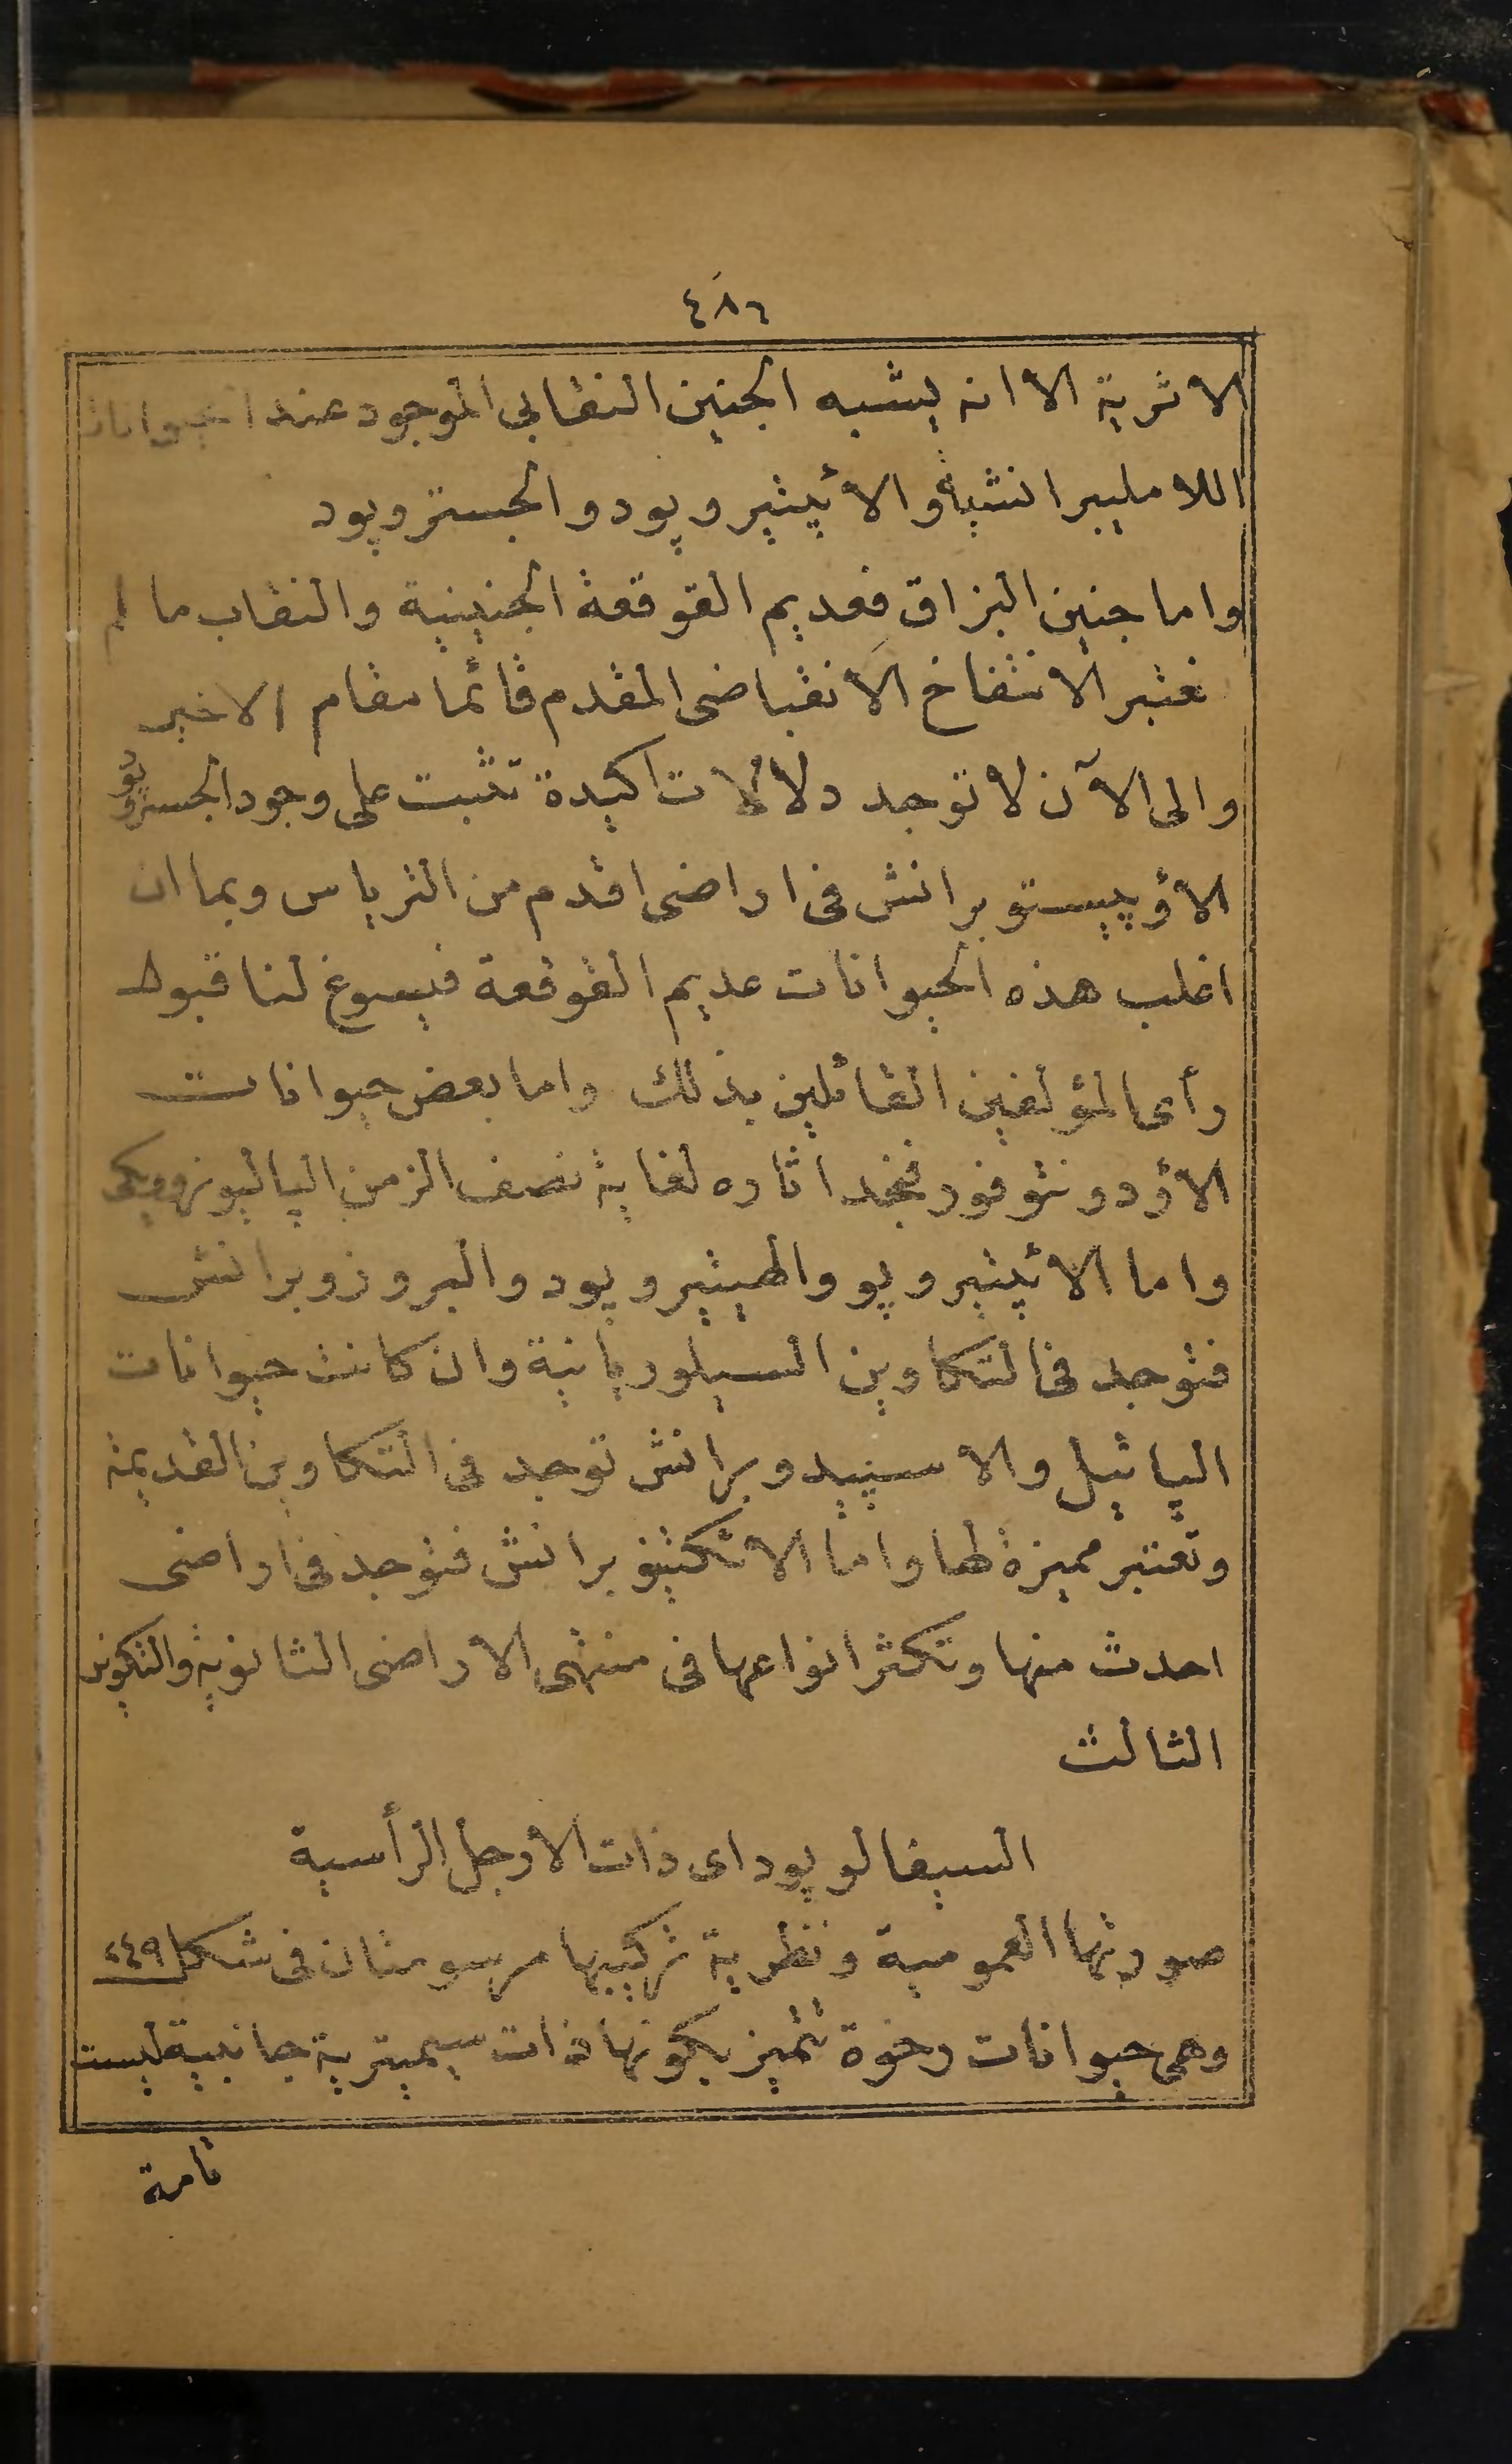 ٤٨٦
الاثرية الا انه يشبه الجنين النقابي الموجود عند الحيوانات
اللامليبرانشية والأيثيروپود والجسترو پود
واما جنين البزاق فعديم القوقعة الجنينية والنقاب ما لم
نعتبر الانتفاخ الانقباضى المقدم قائما مقام الاخير
والى الآن لا توجد دلالات اكيدة تثبت على وجود الجستروپود
الأوپيستوبرانش فى اراضى اقدم من الترياس وبما ان
اغلب هذه الحيوانات عديم القوقعة فيسوغ لنا قبول
رأى المؤلفين القائلين بذلك واما بعض حيوانات
الأودونتوفور فنجد اثاره لغاية نصف الزمن الپاليوزوويكى
واما الأيثيروپو والهيثيروپود والپروزوبرانش
فتوجد فى التكاوين السيلوريانية وان كانت حيوانات
الپاتيل والاسپيدوبرانش توجد فى التكاوين القديمة
وتعتبر مميزة لها واما الاتكتيبوبرانش فتوجد فى اراضى
احدث منها وتكثر انواعها فى منتهى الاراضى الثانوية والتكوين
الثالث
السيفالوپود اى ذات الأرجل الرأسية
صورتها العمومية ونظرية تركيبها مرسومتان فى شكل ٢٤٩
وهى حيوانات رخوة تتميز بكونها ذات سيميترية جانبية ليست
تامة